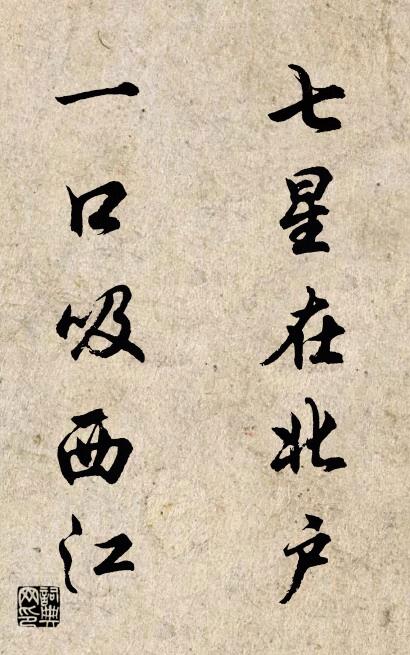 七星在北户
一口吸西江
詞典網印